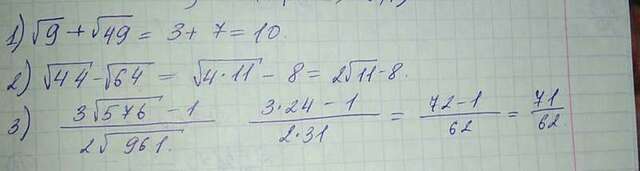 1) √9 + √49 = 3 + 7 = 10.
2) √44 - √64 = √4·11 - 8 = 2√11 - 8.
3) (3√576 - 1)/(2√961.) (3·24 - 1)/(2·31) = (72 - 1)/62 = 71/62.